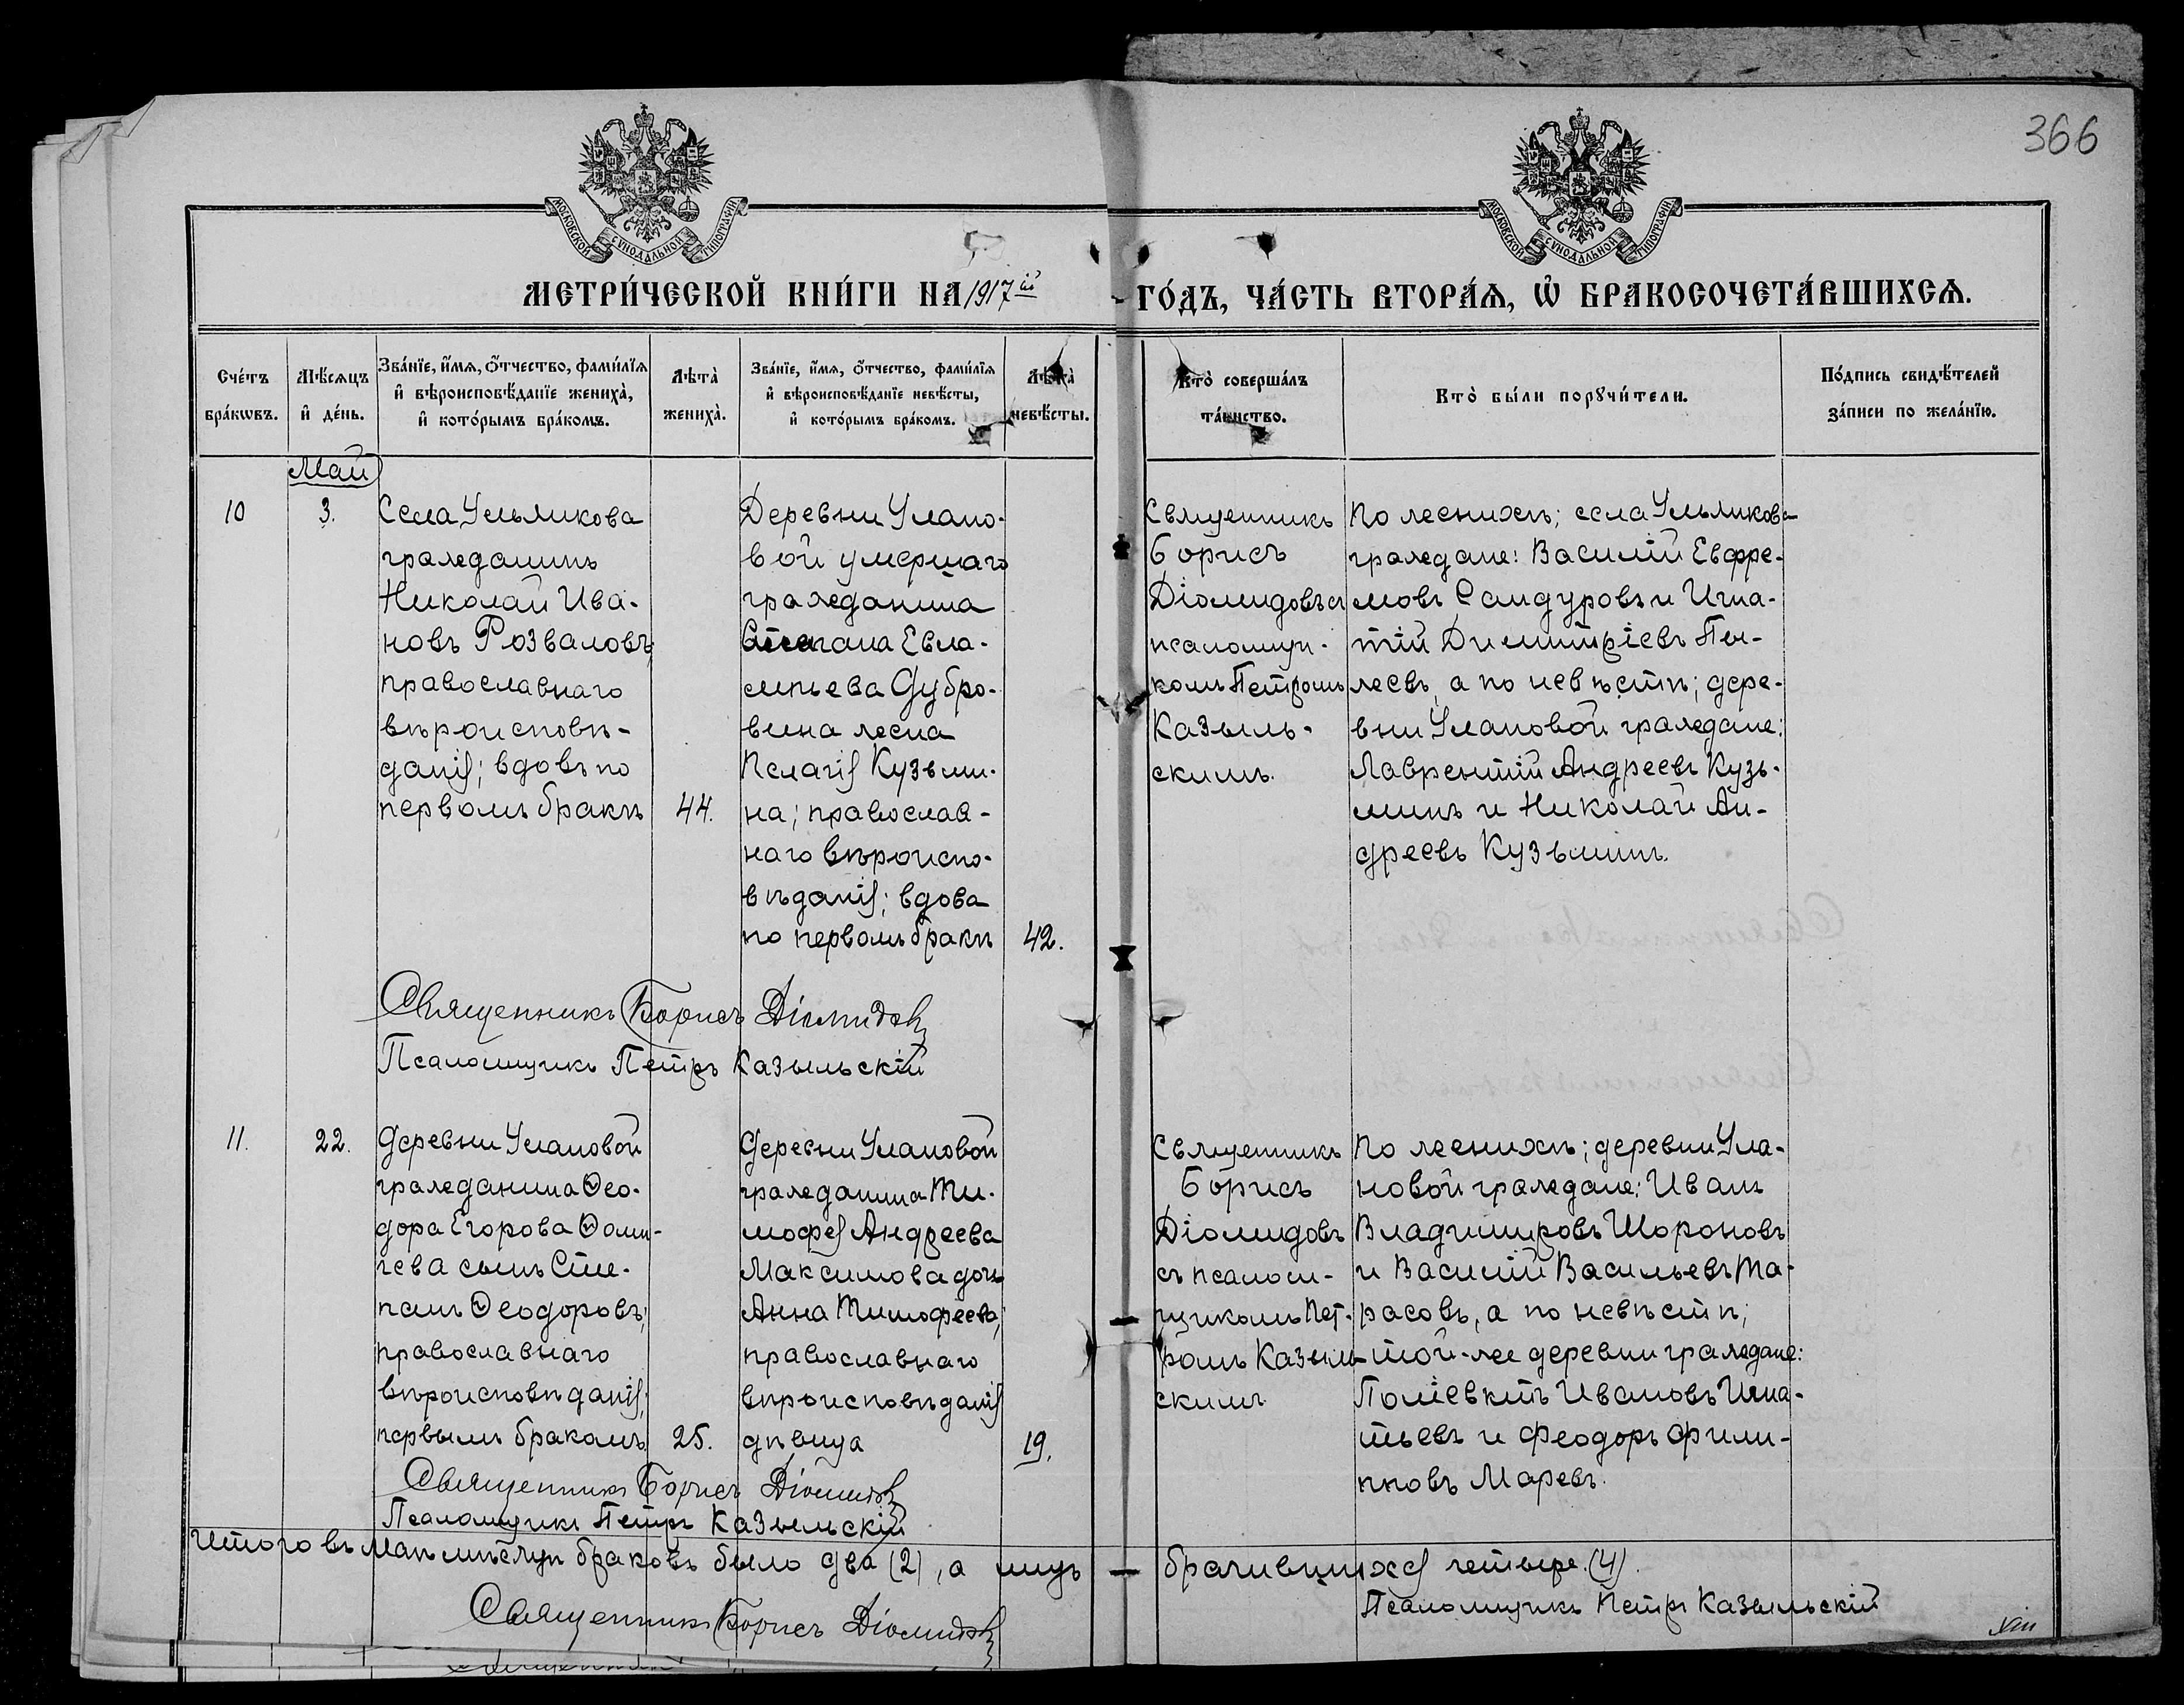 366
МОСКОВСКОЙ СѴНОДАЛЬНОЙ ТИПОГРАФІИ
МОСКОВСКОЙ СѴНОДАЛЬНОЙ ТИПОГРАФІИ
МЕТРИ́ЧЕСКОЙ КНИ́ГИ НА 1917й
ГО́ДЪ, ЧА́СТЬ ВТОРА́Ѧ, Ѡ҆ БРАКОСОЧЕТА́ВШИХСѦ.
Сче́тъ
бра́кѡвъ.
Мѣ́сяцъ
и҆ де́нь.
Зва́нїе, и҆́мѧ, ѻ҆́тчество, фами́лїѧ
и҆ вѣроисповѣ́данїе жениха̀,
и҆ кото́рымъ бра́комъ.
Лѣта̀
жениха̀.
Зва́нїе, и҆́мѧ, ѻ҆́тчество, фами́лїѧ
и҆ вѣроисповѣ́данїе невѣ́сты,
и҆ кото́рымъ бра́комъ.
Лѣта̀
невѣ́сты.
Кто̀ соверша́лъ
та́инство.
Кто̀ бы́ли порꙋчи́тели.
По́дпись свидѣ́телей
за́писи по жела́нїю.
Май
10
3.
Села Ульликова
гражданинъ
Николай Ива-
новъ Розваловъ,
православнаго
вѣроисповѣ-
данія; вдовъ по
первомъ бракѣ
44.
Деревни Улано-
вой умершаго
гражданина
Степана Евла-
мпьева Дубро-
вина жена
Пелагія Кузьми-
на; православ-
наго вѣроиспо-
вѣданія; вдова
по первомъ бракѣ
42.
Священникъ
Борисъ
Діомидовъ съ
псаломщи-
комъ Петромъ
Казыль-
скимъ.
По женихѣ; села Ульликова
граждане: Василій Евфре-
мовъ Сандуровъ и Игна-
тій Димитріевъ
а по невѣстѣ; дере-
вни Улановой граждане:
Лаврентій Андреевъ Кузь-
минъ и Николай Ан-
дреевъ Кузьминъ.
Священникъ Борисъ Діомидовъ
Псаломщикъ Петръ Казыльскій
11.
22.
Деревни Улановой
гражданина Ѳео-
дора Егорова Ѳоми-
чева сынъ Сте-
панъ Ѳеодоровъ;
православнаго
вѣроисповѣданія;
первымъ бракомъ
25.
Деревни Улановой
гражданина Ти-
мофея Андреева
Максимова дочь
Анна Тимофеева;
православнаго
вѣроисповѣданія
дѣвица
19.
Священникъ
Борисъ
Діомидовъ
съ псалом-
щикомъ Пет-
ромъ Казыль-
скимъ
По женихѣ; деревни Ула-
новой граждане: Иванъ
Владимировъ Шороновъ
и Василій Васильевъ Та-
расовъ, а по невѣстѣ;
той-же деревни граждане:
Поліевктъ Ивановъ Игна-
тьевъ и Феодоръ Фили-
пповъ Маревъ.
Священникъ Борисъ Діомидовъ
Псаломщикъ Петръ Казыльскій
Итого въ Маѣ мѣсяцѣ браковъ было два (2), а лицъ брачившихся четыре (4).
Псаломщикъ Петръ Казыльскій
Священникъ Борисъ Діомидовъ